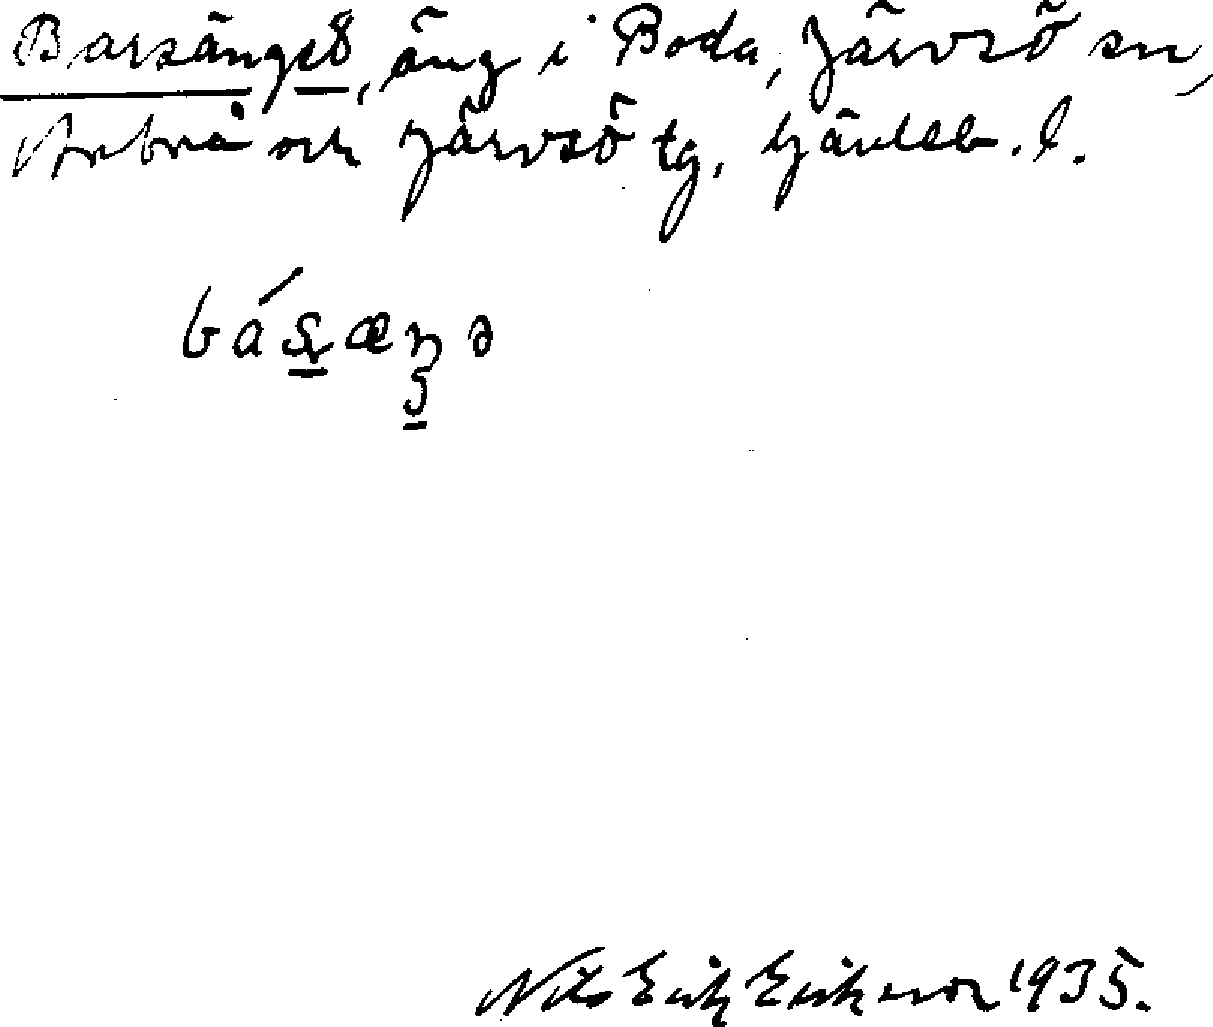 Barsänget, äng i Boda, Järvsö sn,
Arbrå och Järvsö tg, Gävleb. l.
Nils Erik Eriksson 1935.